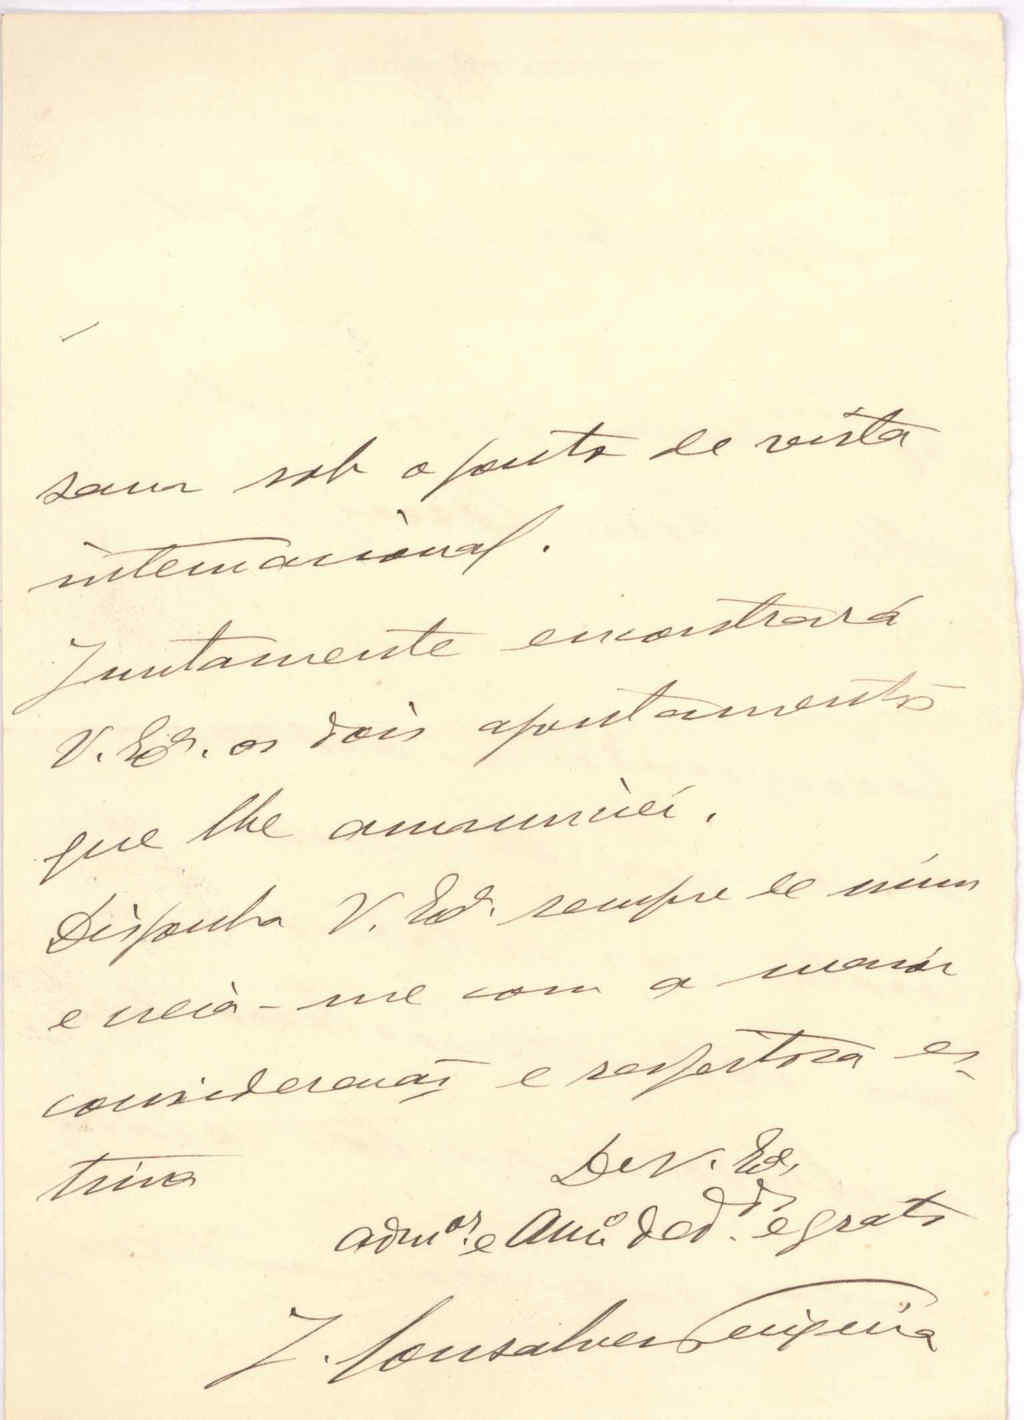 sam sob o ponto de vista
internacional.
Juntamente encontrará
V. Exª. os dois apontamentos
que lhe anunciei.
Disponha V. Exª. sempre de mim
e creia-me com a maior
consideração e respeitosa es-
tima
De V. Exª.
admor. e Amº. dedº. e grato
J. Gonsalves Teixeira